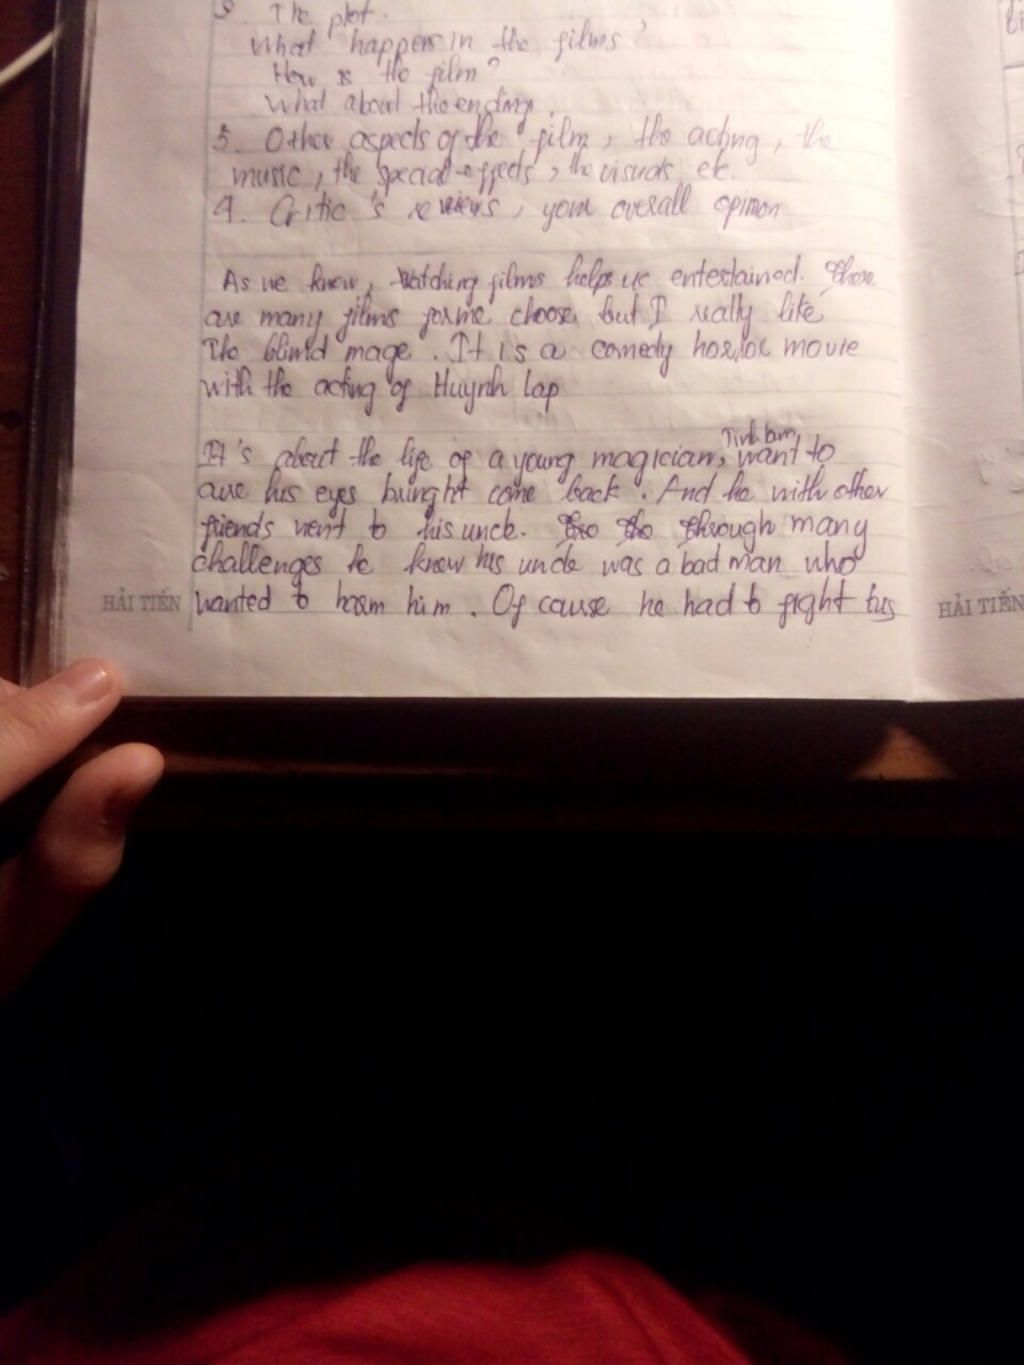 The plot.
What happens in the films?
How is the film?
What about the ending.
3. Other aspects of the film, the acting, the
music, the special effects, the visuals etc.
4. Critic's reviews, your overall opinion
As we know, Watching films helps us entertained. There
are many films for me choose, but I really like
The blind mage. It is a comedy horror movie
with the acting of Huynh Lap
It's about the life of a young magician, Tinh Lam, want to
his eyes come back. And he with other
friends went to his uncle. through many
challenges he know his uncle was a bad man who
wanted to harm him. Of cause he had to fight his
HẢI TIẾN
HẢI TIẾN